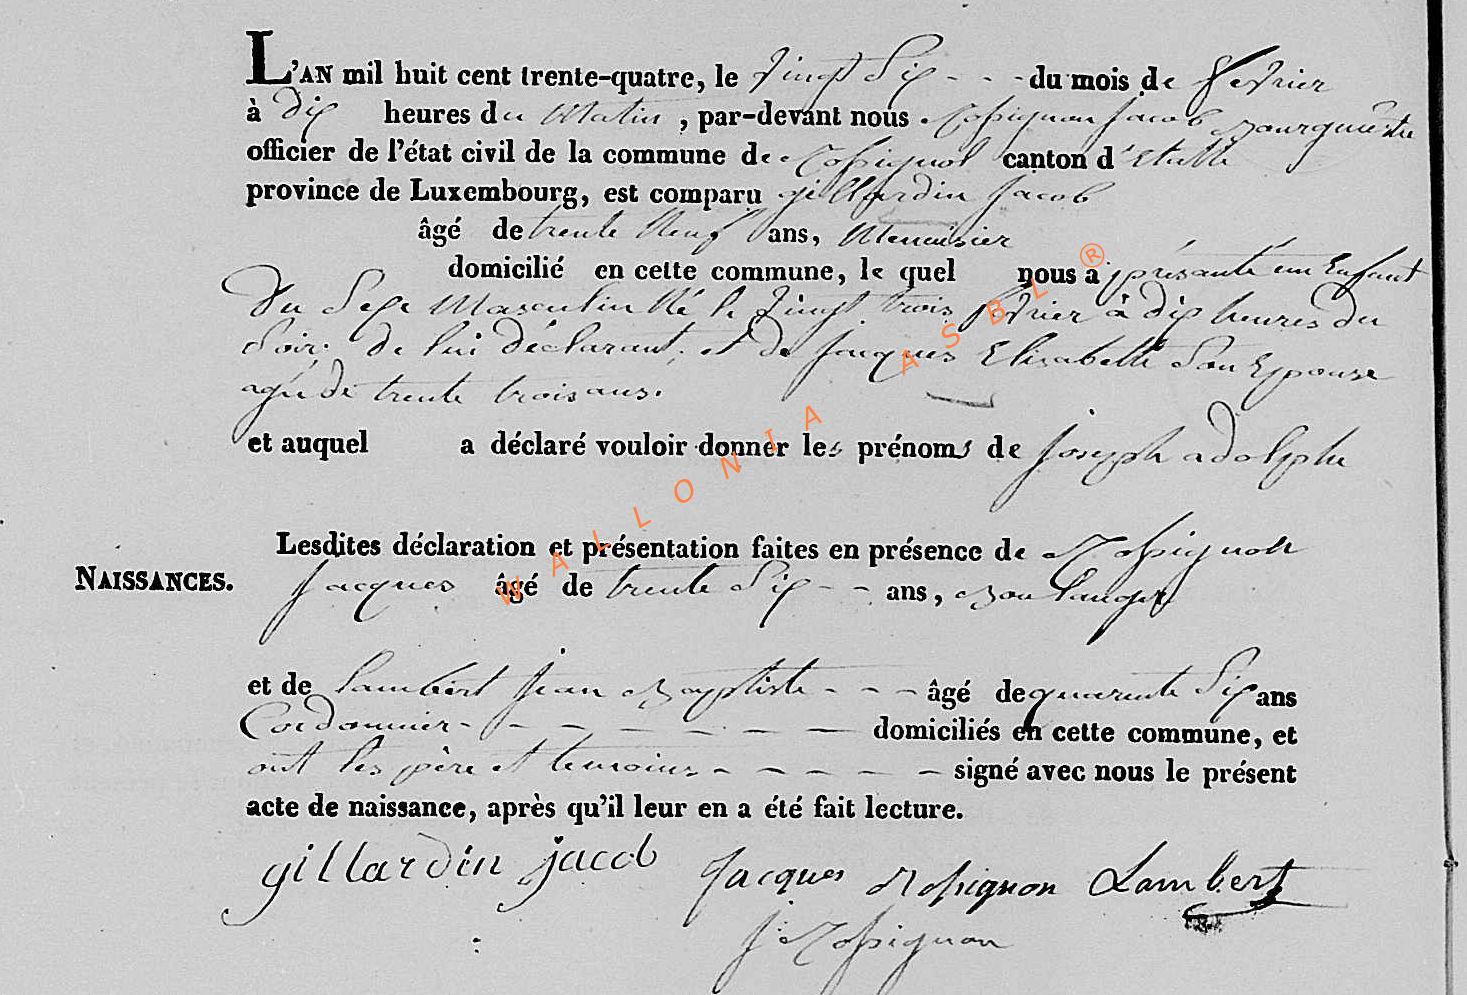 L'AN mil huit cent trente-quatre, le vingt Six - - - du mois de fevrier
à dix heures du Matin, par-devant nous Rossignon Jacob Bourguemestre
officier de l'état civil de la commune de Rossignol canton d'Etalle
province de Luxembourg, est comparu gillardin Jacob
âgé de trente Neuf ans, Menuisier
domicilié en cette commune, le quel nous a présenté un Enfant
du Sexe Masculin Né le vingt trois fevrier à dix heures du
Soir. de lui déclarant, et de Jacques Elisabette Son Epouse
agée de trente trois ans.
et auquel a déclaré vouloir donner les prénoms de Joseph adolphe
Lesdites déclaration et présentation faites en présence de Rossignon
NAISSANCES.
Jacques âgé de trente Six - - ans, Boulanger
et de Lambert Jean Baptiste - - - âgé de quarente Six ans
Cordonnier - - - - - - - domiciliés en cette commune, et
ont les père et temoins - - - - - - signé avec nous le présent
acte de naissance, après qu'il leur en a été fait lecture.
gillardin jacob Jacques Rossignon Lambert
J Rossignon
WALLONIA ASBL ®